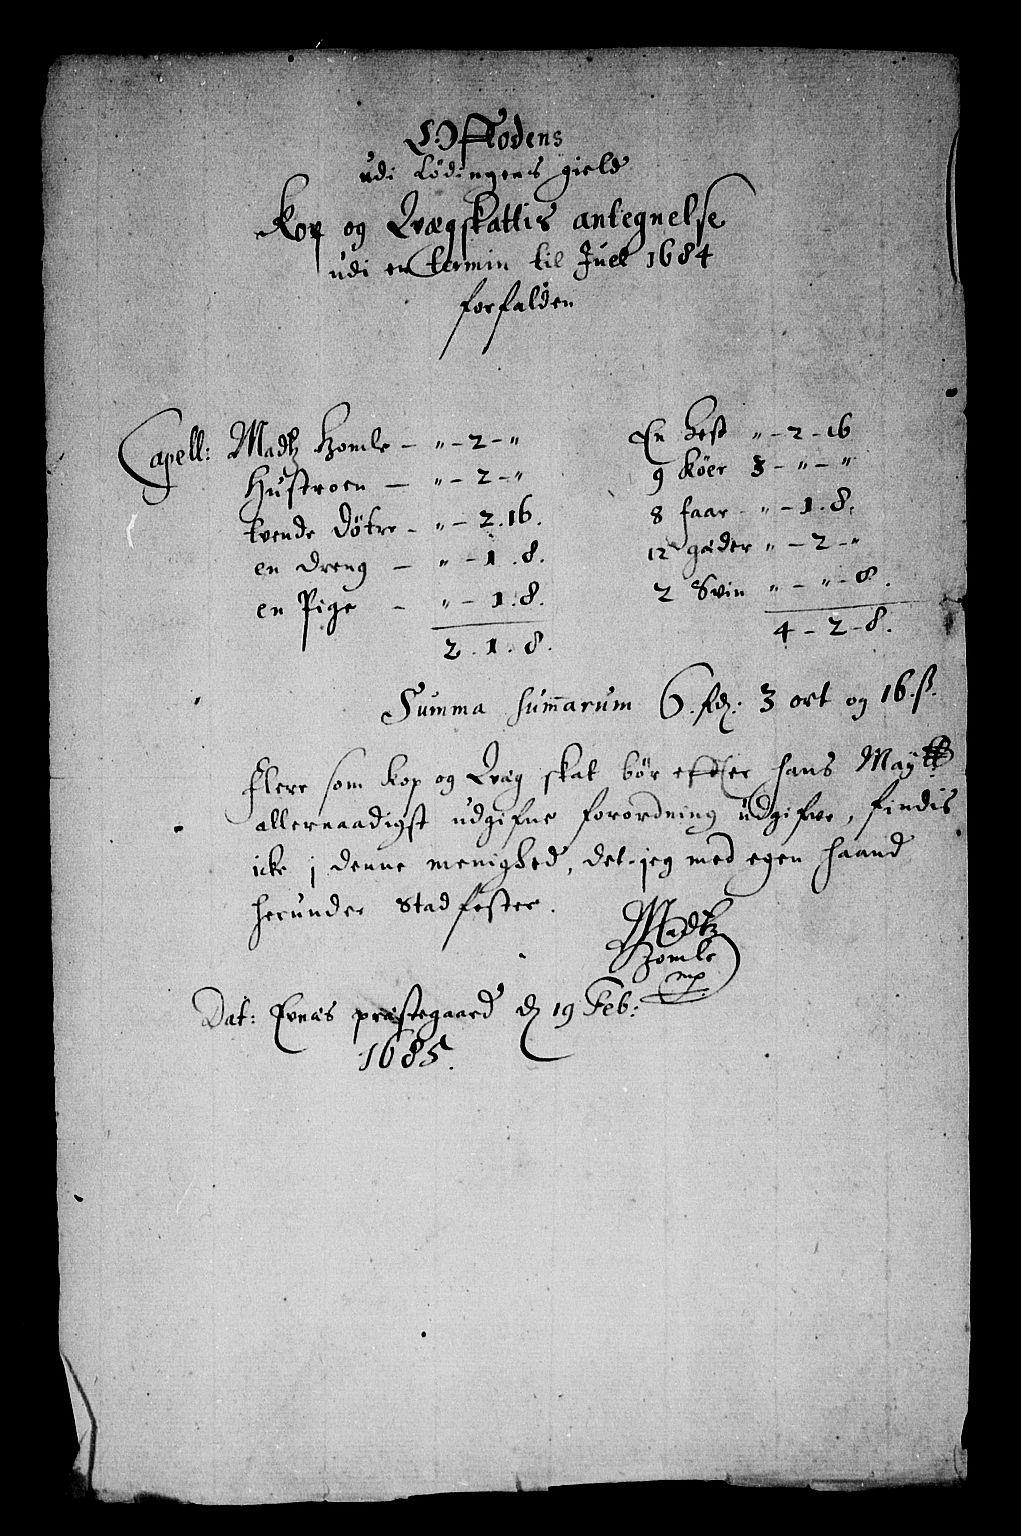 S: Offodens
udi Lødingens gield
Kop og Qvægskattis antegnelse
udi en termin til Juel 1684
forfalden
Capell: Madtz Homle – „ – 2 – „
Hustroen – „ – 2 – „
tvende døtre – „ – 2. 16.
en dreng – „ – 1. 8.
en Pige – „ – 1. 8.
2. 1. 8.
En hest „ – 2 – 16
9 Køer 3 – „ – „
8 faar – „ – 1. 8.
12 gieder „ – 2 – „
2 Sviin „ – „ – 8.
4 – 2 – 8.
Summa summarum 6. Rd: 3 ort og 16. ß.
Flere som kop og Qvæg skat bør effter hans Maytt:
allernaadigst udgifne forordning udgifve, findis
icke j denne menighed, det jeg med egen haand
herunder Stadfester.
Madtz
Homle
mp
Dat: Evnæs præstegaard d 19 Feb:
1685.